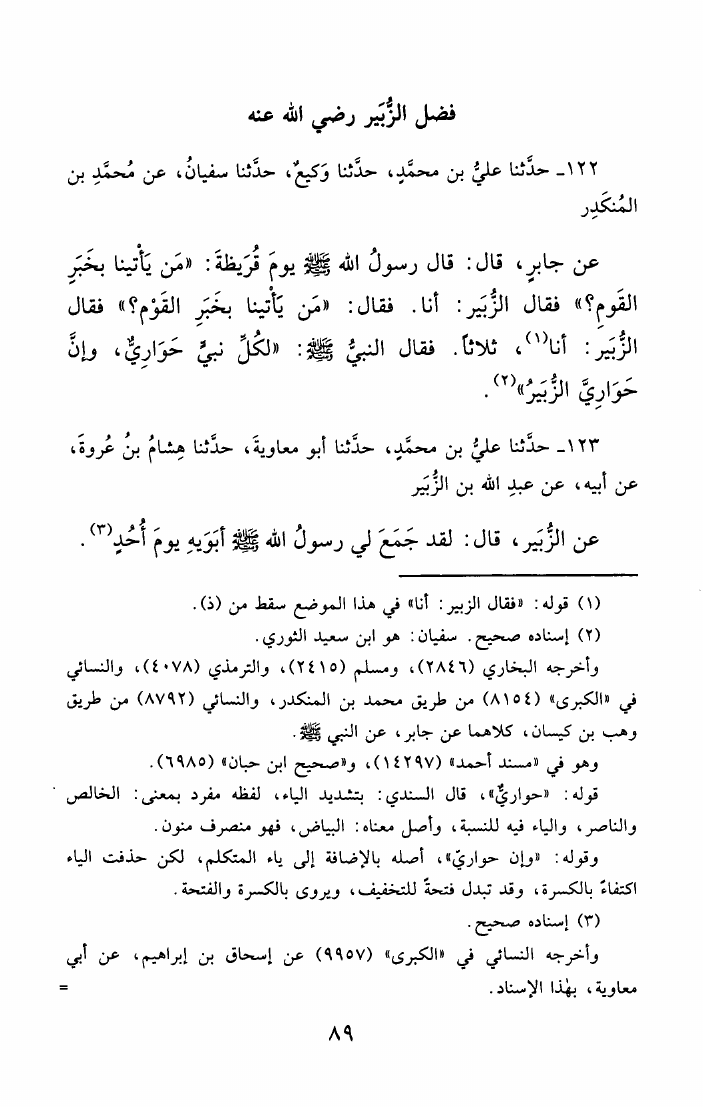 فضل الزُّبَير رضي الله عنه
١٢٢ـ حدَّثنا عليُّ بن محمَّدٍ، حدَّثنا وَكيعٌ، حدَّثنا سفيانُ، عن مُحمَّدِ بن
المُنكَدِر
عن جابرٍ، قال: قال رسولُ الله ﷺ يومَ قُرَيظةَ: «مَن يَأْتينا بخَبَرِ
القَومِ؟» فقال الزُّبَير: أنا. فقال: «مَن يَأْتينا بخَبَرِ القَوْم؟» فقال
الزُّبَير: أنا(١)، ثلاثاً. فقال النبيُّ ﷺ: «لكُلِّ نبيٍّ حَوَارِيٌّ، وإنَّ
حَوَارِيَّ الزُّبَيرُ»(٢).
١٢٣ـ حدَّثنا عليُّ بن محمَّدٍ، حدَّثنا أبو معاويةَ، حدَّثنا هِشامُ بنُ عُروةَ،
عن أبيه، عن عبدِ الله بن الزُّبَير
عن الزُّبَير، قال: لقد جَمَعَ لي رسولُ الله ﷺ أبَوَيهِ يومَ أُحُدٍ(٣).
(١) قوله: «فقال الزبير: أنا» في هذا الموضع سقط من (ذ).
(٢) إسناده صحيح. سفيان: هو ابن سعيد الثوري.
وأخرجه البخاري (٢٨٤٦)، ومسلم (٢٤١٥)، والترمذي (٤٠٧٨)، والنسائي
في «الكبرى» (٨١٥٤) من طريق محمد بن المنكدر، والنسائي (٨٧٩٢) من طريق
وهب بن كيسان، كلاهما عن جابر، عن النبي ﷺ.
وهو في «مسند أحمد» (١٤٢٩٧)، و«صحيح ابن حبان» (٦٩٨٥).
قوله: «حواريٌّ»، قال السندي: بتشديد الياء، لفظه مفرد بمعنى: الخالص
والناصر، والياء فيه للنسبة، وأصل معناه: البياض، فهو منصرف منون.
وقوله: «وإن حواريّ»، أصله بالإضافة إلى ياء المتكلم، لكن حذفت الياء
اكتفاءً بالكسرة، وقد تبدل فتحةً للتخفيف، ويروى بالكسرة والفتحة.
(٣) إسناده صحيح.
وأخرجه النسائي في «الكبرى» (٩٩٥٧) عن إسحاق بن إبراهيم، عن أبي
معاوية، بهٰذا الإسناد. =
٨٩